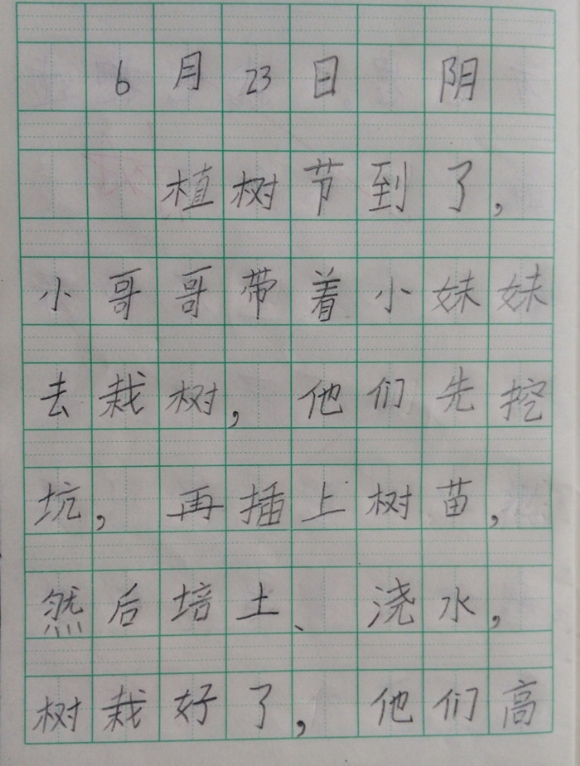 6月23日 阴
植树节到了，
小哥哥带着小妹妹
去栽树，他们先挖
坑，再插上树苗，
然后培土、浇水，
树栽好了，他们高